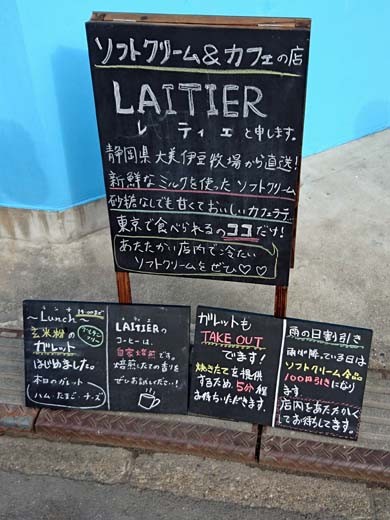 ソフトクリーム&カフェの店
LAITIER
レ ティエ と申します。
静岡県 大美伊豆牧場から直送!
新鮮なミルクを使ったソフトクリーム
砂糖なしでも甘くておいしいカフェラテ
東京で食べられるのココだけ!
あたたかい店内で冷たい
ソフトクリームをぜひ♡♡
ランチ
~Lunch~
玄米粉の
グルテンフリー
ガレット
はじめました。
本日のガレット
ハム・たまご・チーズ
レティエ
LAITIERの
コーヒーは、
自家焙煎です。
焙煎したての香りを
ぜひお試しください!
ガレットも
TAKE OUT
できます!
焼きたてを提供
するため、5分程
お待ちいただきます。
雨の日割引き
雨が降っている日は
ソフトクリーム全品
100円引きになり
ます
店内をあたたかく
してお待ちしてます。